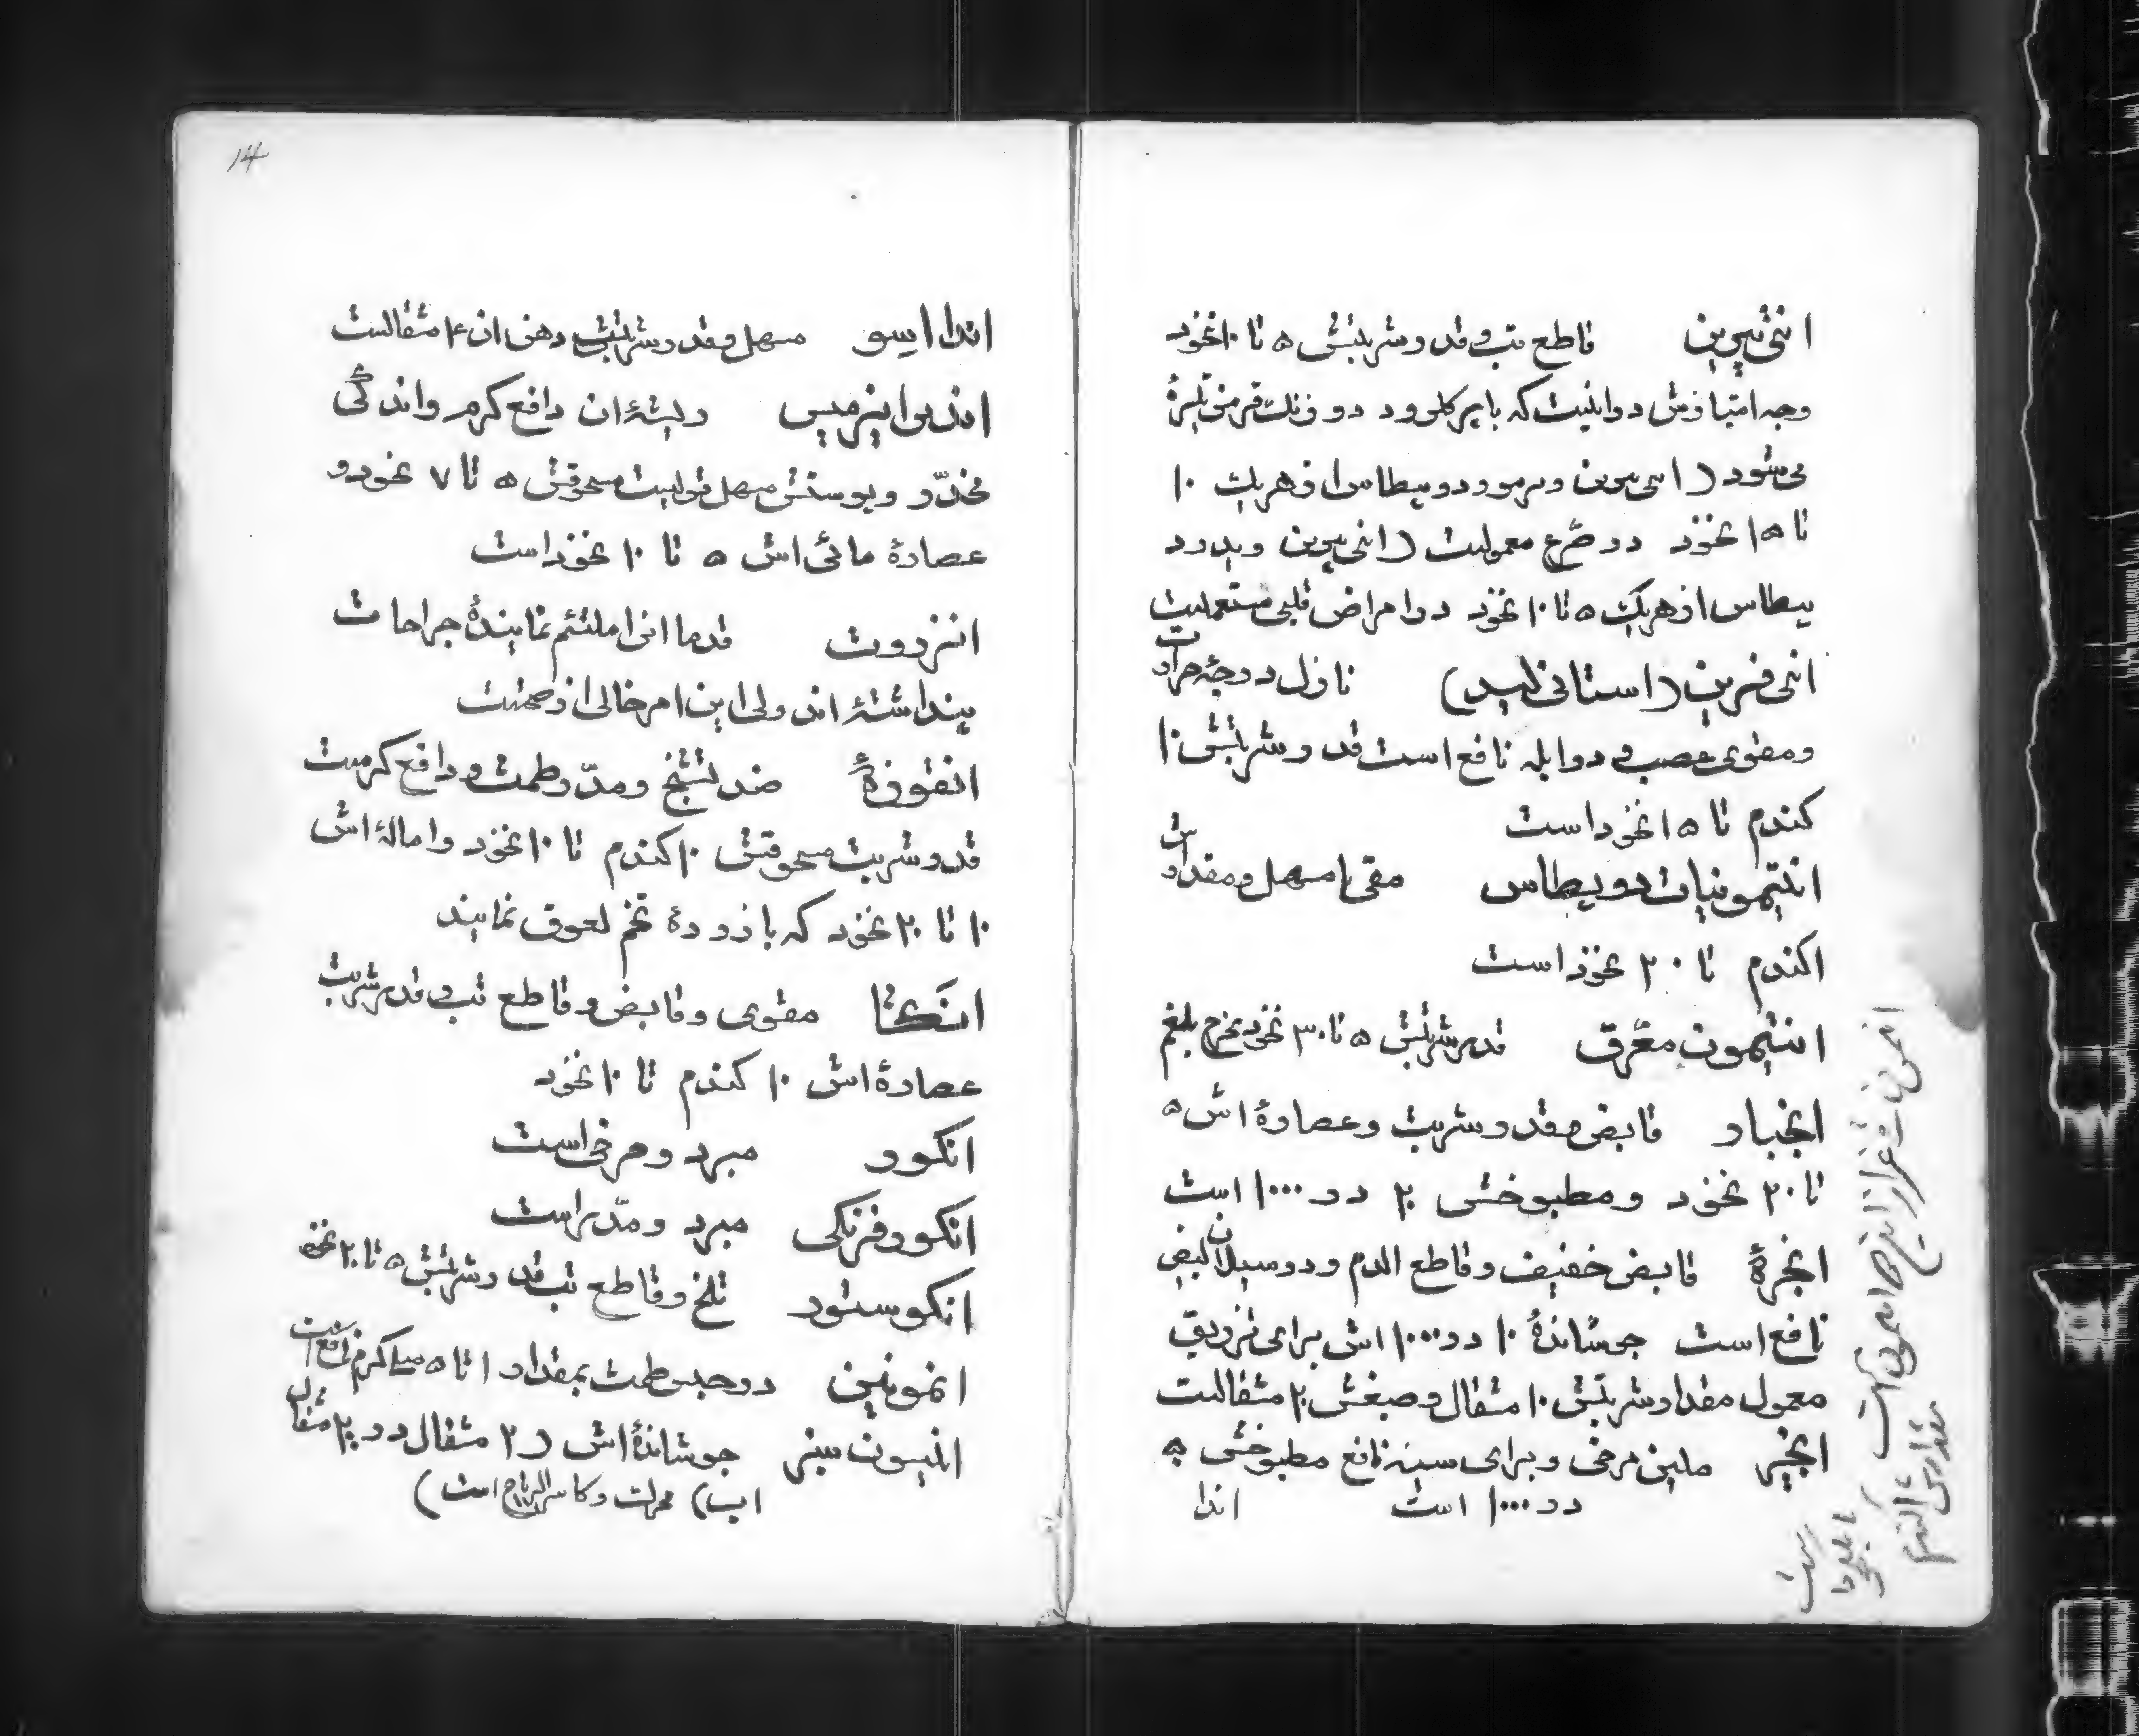 انتی‌پیرین قاطع تب و قدر شربتش ۵ تا ۱۰ نخود
وجه امتیازش در اینست که با پرکلرور دو فر رنگ قرمز تیرهٔ
می‌شود (انتی‌پیرین و برمور دو پطاس از هر یک ۱۰
تا ۱۵ نخود در صرع معمولست (انتی‌پیرین و یدور د
پطاس از هر یک ۵ تا ۱۰ نخود در امراض قلبی مستعملست
انتی‌فبرین (استانیلید) نازل درجهٔ حرارت
و مقوی عصب و در ابله نافع است قدر شربتش ۱۰
کندم تا ۱۵ نخود است
انتیمونیات دو پطاس مقی یا مسهل و مقدارش
۱ کندم تا ۲۰ نخود است
انتیمون معرّق قدر شربتش ۵ تا ۳۰ نخود مخرج بلغم
انجبار قابض و قدر شربت و عصارهٔ اش ۵
تا ۲۰ نخود و مطبوخش ۲۰ در ۱۰۰۰ است
انجرهٔ قابض خفیف و قاطع الدم و در سیلان ابیض
نافع است جوشاندهٔ ۱۰ در ۱۰۰۰ اش برای تزریق
معمول مقدار شربتش ۱۰ مثقال و صبغش ۲۰ مثقالست
انجیر ملین مرخی و برای سینه نافع مطبوخش ۵۰
در ۱۰۰۰ است اندا
مقدارش ۱ کندم
تا نخود
است
۱۴
اندا ایسو مسهل و قدر شربتش دهن ان ۴ مثقالست
اندیرا اینرمیس ریشهٔ ان دافع کرم و اندکی
مخدّر و پوستش مسهل قویست مسحوقش ۵ تا ۷ نخود و
عصارهٔ مائی اش ۵ تا ۱۰ نخود است
انزروت قدما انرا ملتئم نمایندهٔ جراحات
پنداشتهٔ اند ولی این امر خالی از صحتست
انقوزهٔ ضد تشنج و مدّر طمث و دافع کرمست
قدر شربت مسحوقش ۱۰ کندم تا ۱۰ نخود و امالهٔ اش
۱۰ تا ۲۰ نخود که با زردهٔ تخم لعوق نمایند
انکتا مقوی و قابض و قاطع تب و قدر شربت
عصارهٔ اش ۱۰ کندم تا ۱۰ نخود
انکور مبرد و مرخی است
انکور فرنکی مبرد و مدّر است
انکوستور تلخ و قاطع تب قدر شربتش ۵ تا ۲۰ نخود
انمونین در حبس طمث بمقدار ۱ تا ۵ سانتیکرم نافع است
انیسون سبز جوشاندهٔ اش (۲ مثقال در ۲۰۰ مثقال
اب) محرک و کاسر الریاح است)